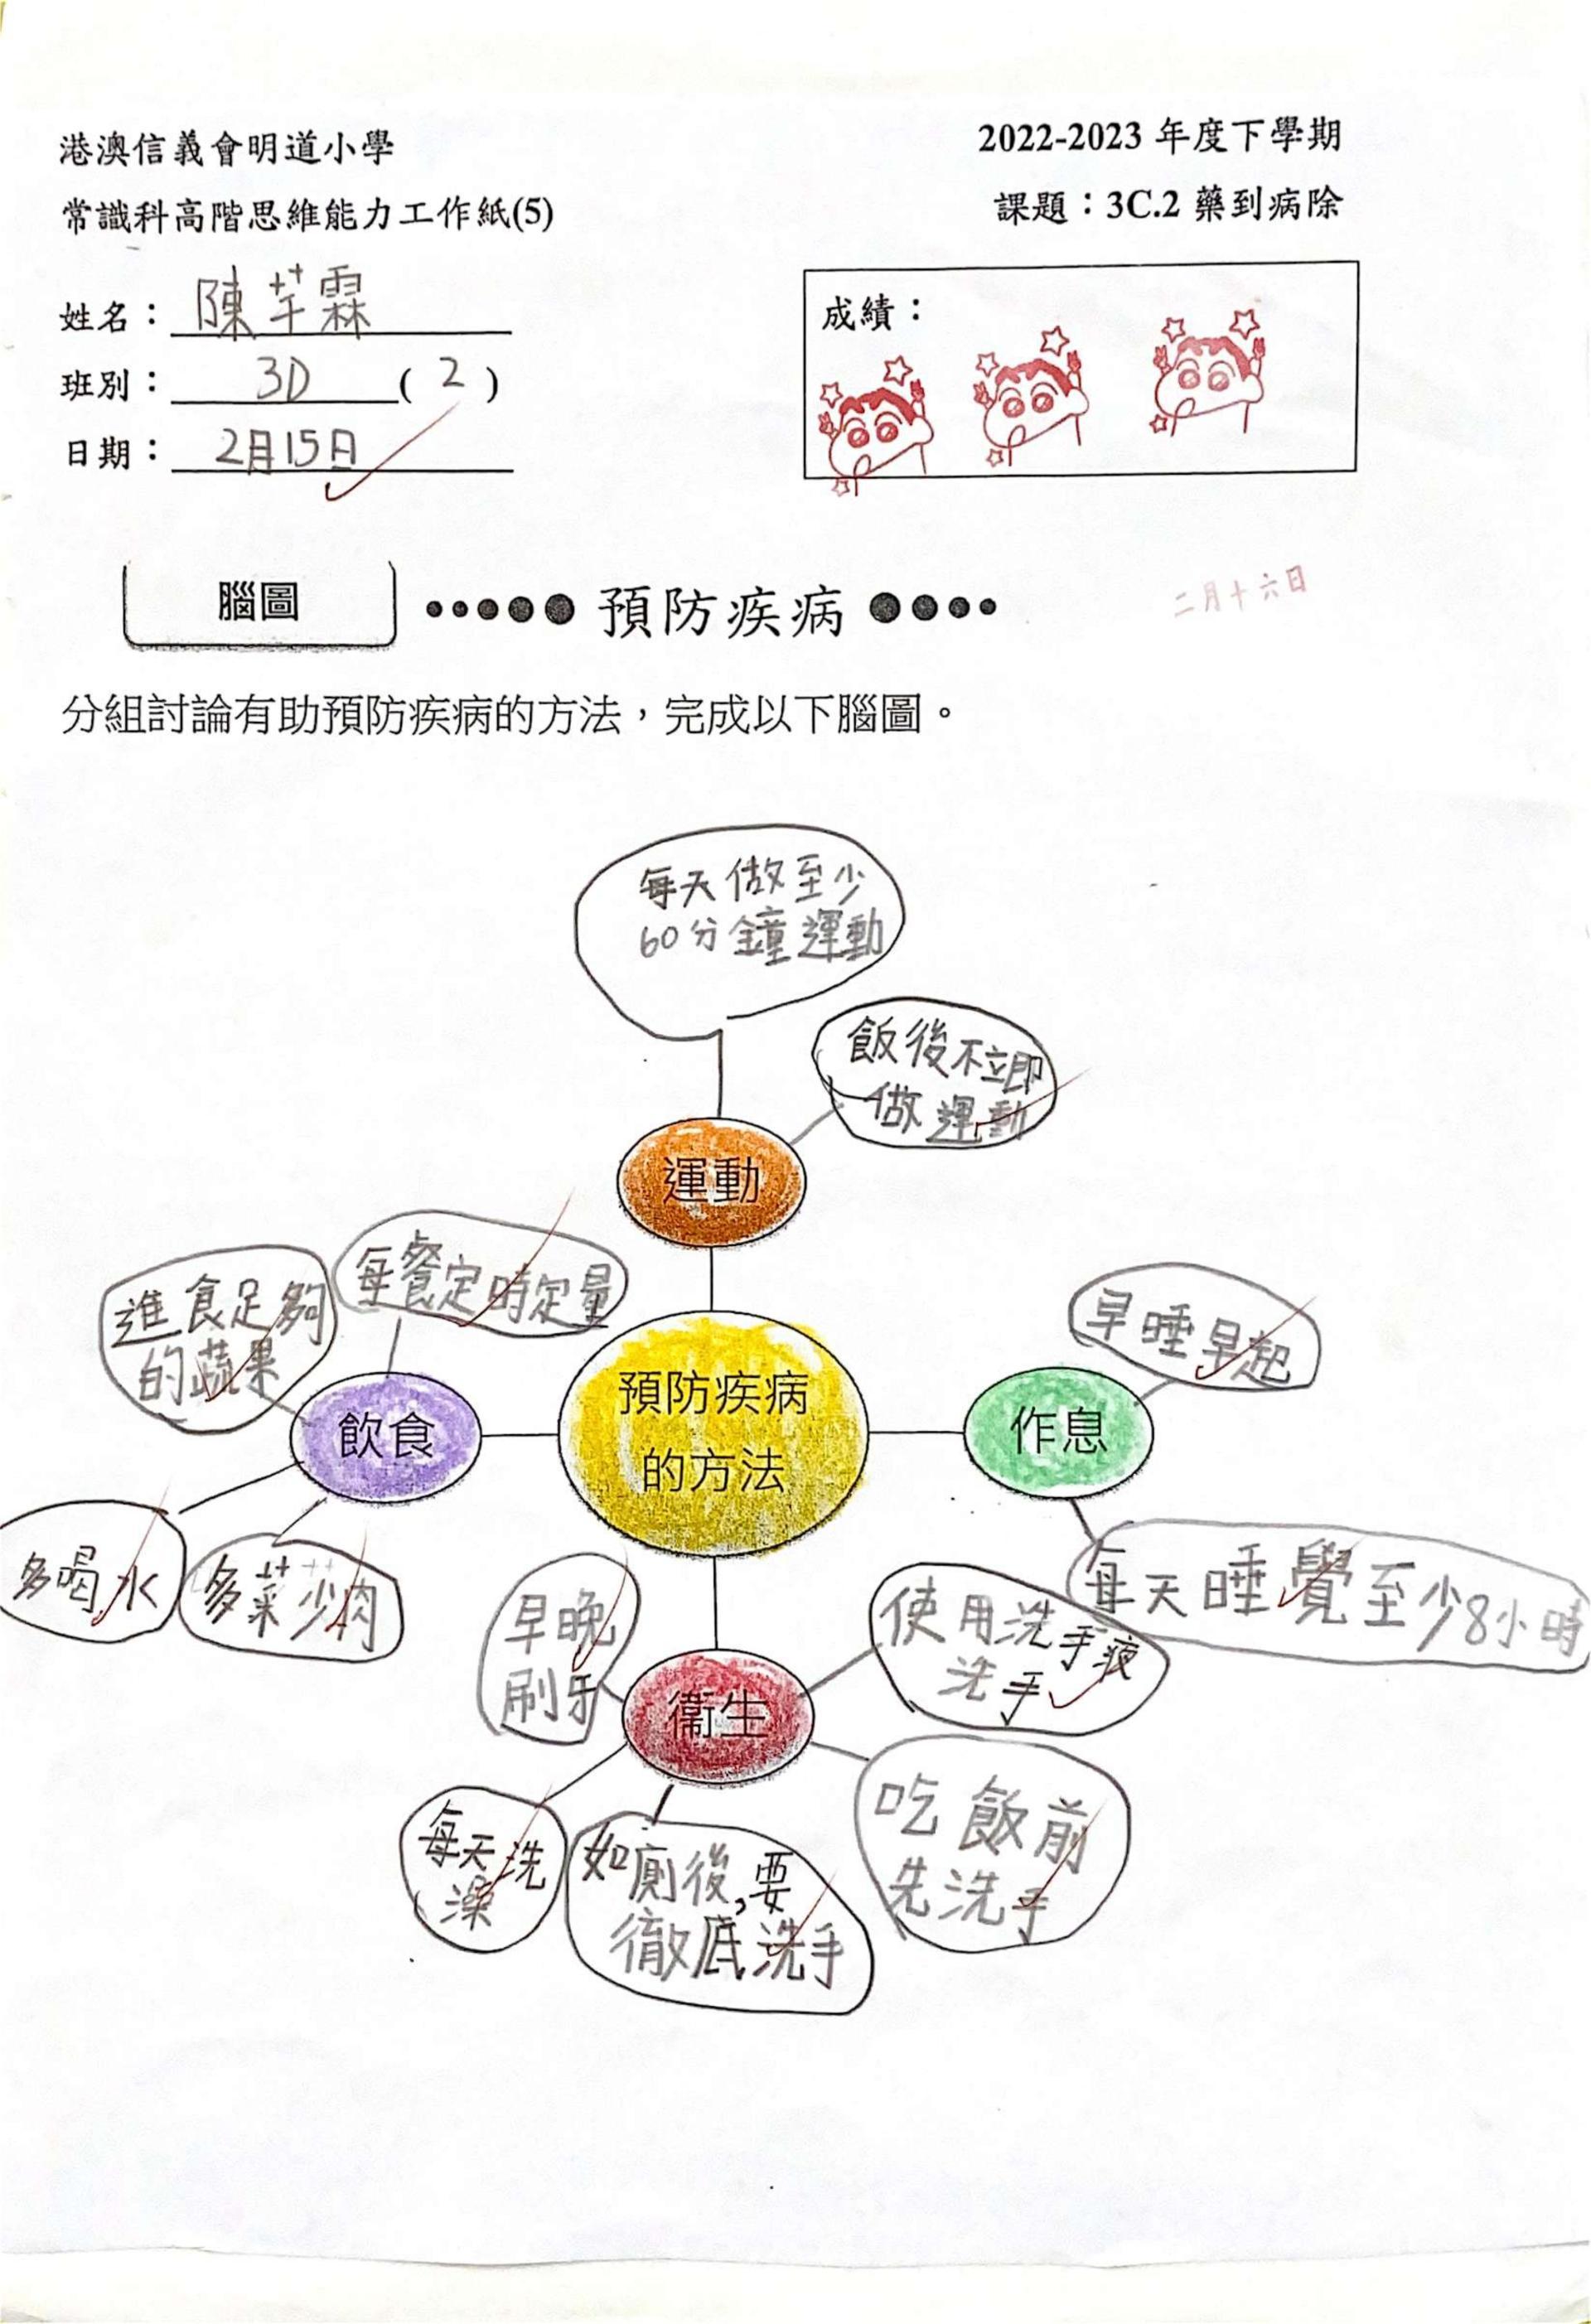 港澳信義會明道小學
2022-2023 年度下學期
常識科高階思維能力工作紙(5)
課題：3C.2 藥到病除
姓名：陳芊霖
班別：3D ( 2 )
日期：2月15日
成績：
腦圖
預防疾病
二月十六日
分組討論有助預防疾病的方法，完成以下腦圖。
每天做至少
60分鐘運動
飯後不立即
做運動
運動
每餐定時定量
進食足夠
的蔬果
飲食
多喝水
多菜少肉
預防疾病
的方法
早睡早起
作息
每天睡覺至少8小時
早晚
刷牙
使用洗手液
洗手
衞生
每天洗
澡
如廁後,要
徹底洗手
吃飯前
先洗手